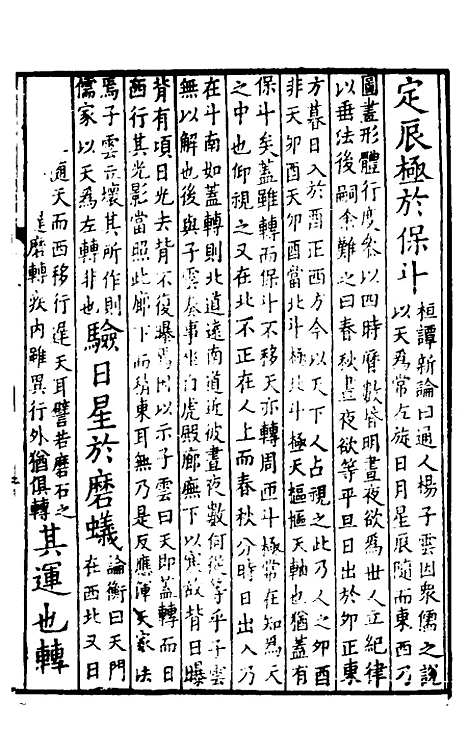 定辰極於保斗
桓譚新論曰通人楊子雲因衆儒之說
以天爲常左旋日月星辰隨而東西乃
圖畫形體行度參以四時曆數昏明晝夜欲爲世人立紀律
以垂法後嗣余難之曰春秋晝夜欲等平旦日出於卯正東
方暮日入於酉正西方今以天下人占視之此乃人之卯酉
非天卯酉天卯酉當北斗極北斗極天樞樞天軸也猶蓋有
保斗矣蓋雖轉而保斗不移天亦轉周匝斗極常在知爲天
之中也仰視之又在北不正在人上而春秋分時日出入乃
在斗南如蓋轉則北道遠南道近彼晝夜數何從等乎子雲
無以解也後與子雲奏事坐白虎殿廊廡下以寒故背日曝
背有頃日光去背不復曝焉因以示子雲曰天即蓋轉而日
西行其光影當照此廊下而稍東耳無乃是反應渾天家法
焉子雲立壞其所作則
儒家以天爲左轉非也
驗日星於磨蟻
論衡曰天門
在西北又曰
天而西移行遲天耳譬若磨石之
是磨轉疾内雖異行外猶俱轉
其運也轉